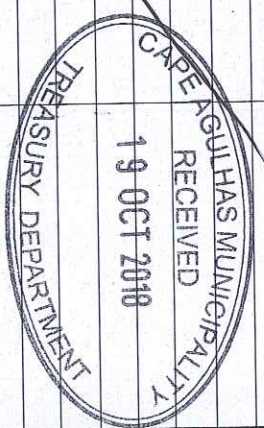 CAPE AGULHAS MUNICIPALITY
RECEIVED
19 OCT 2018
TREASURY DEPARTMENT